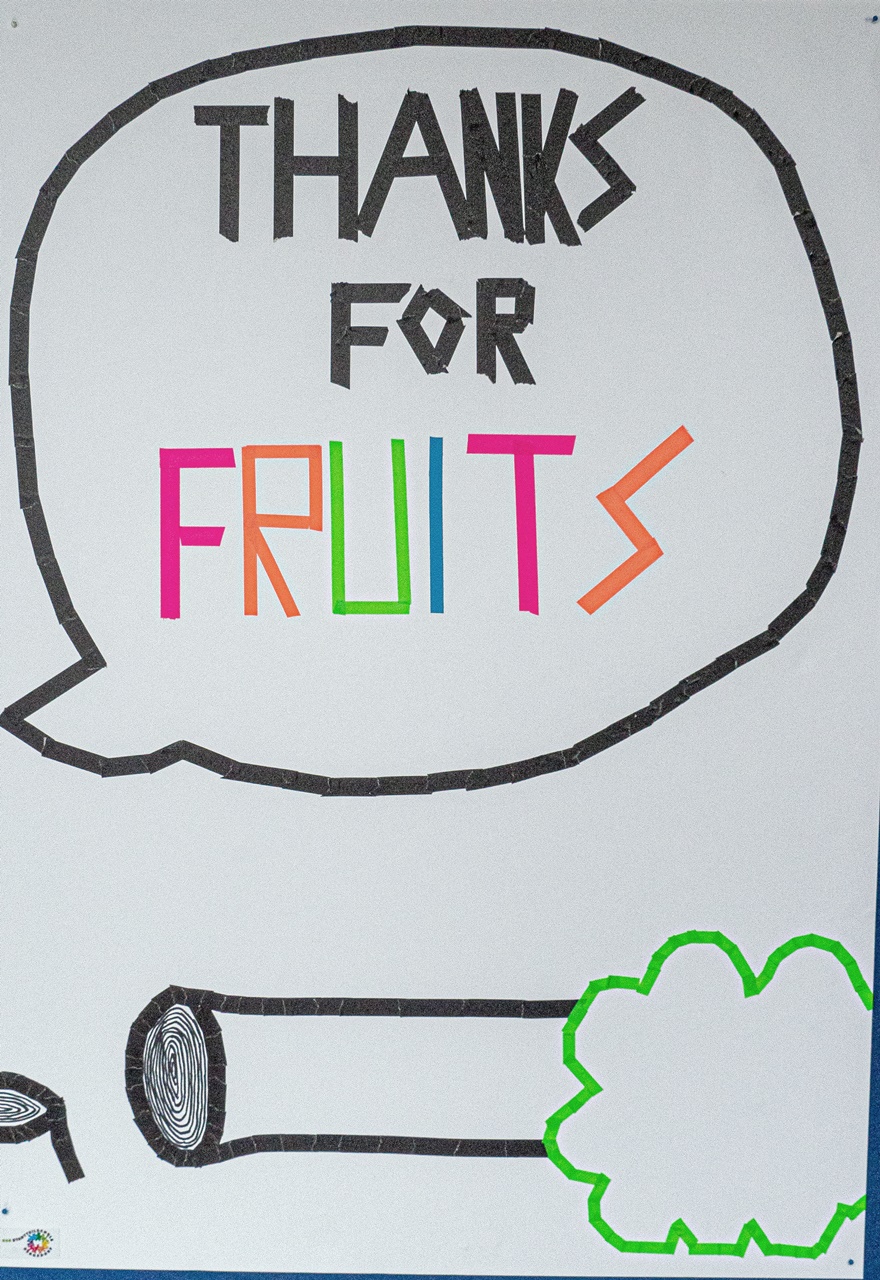 THANKS
FOR
FRUITS